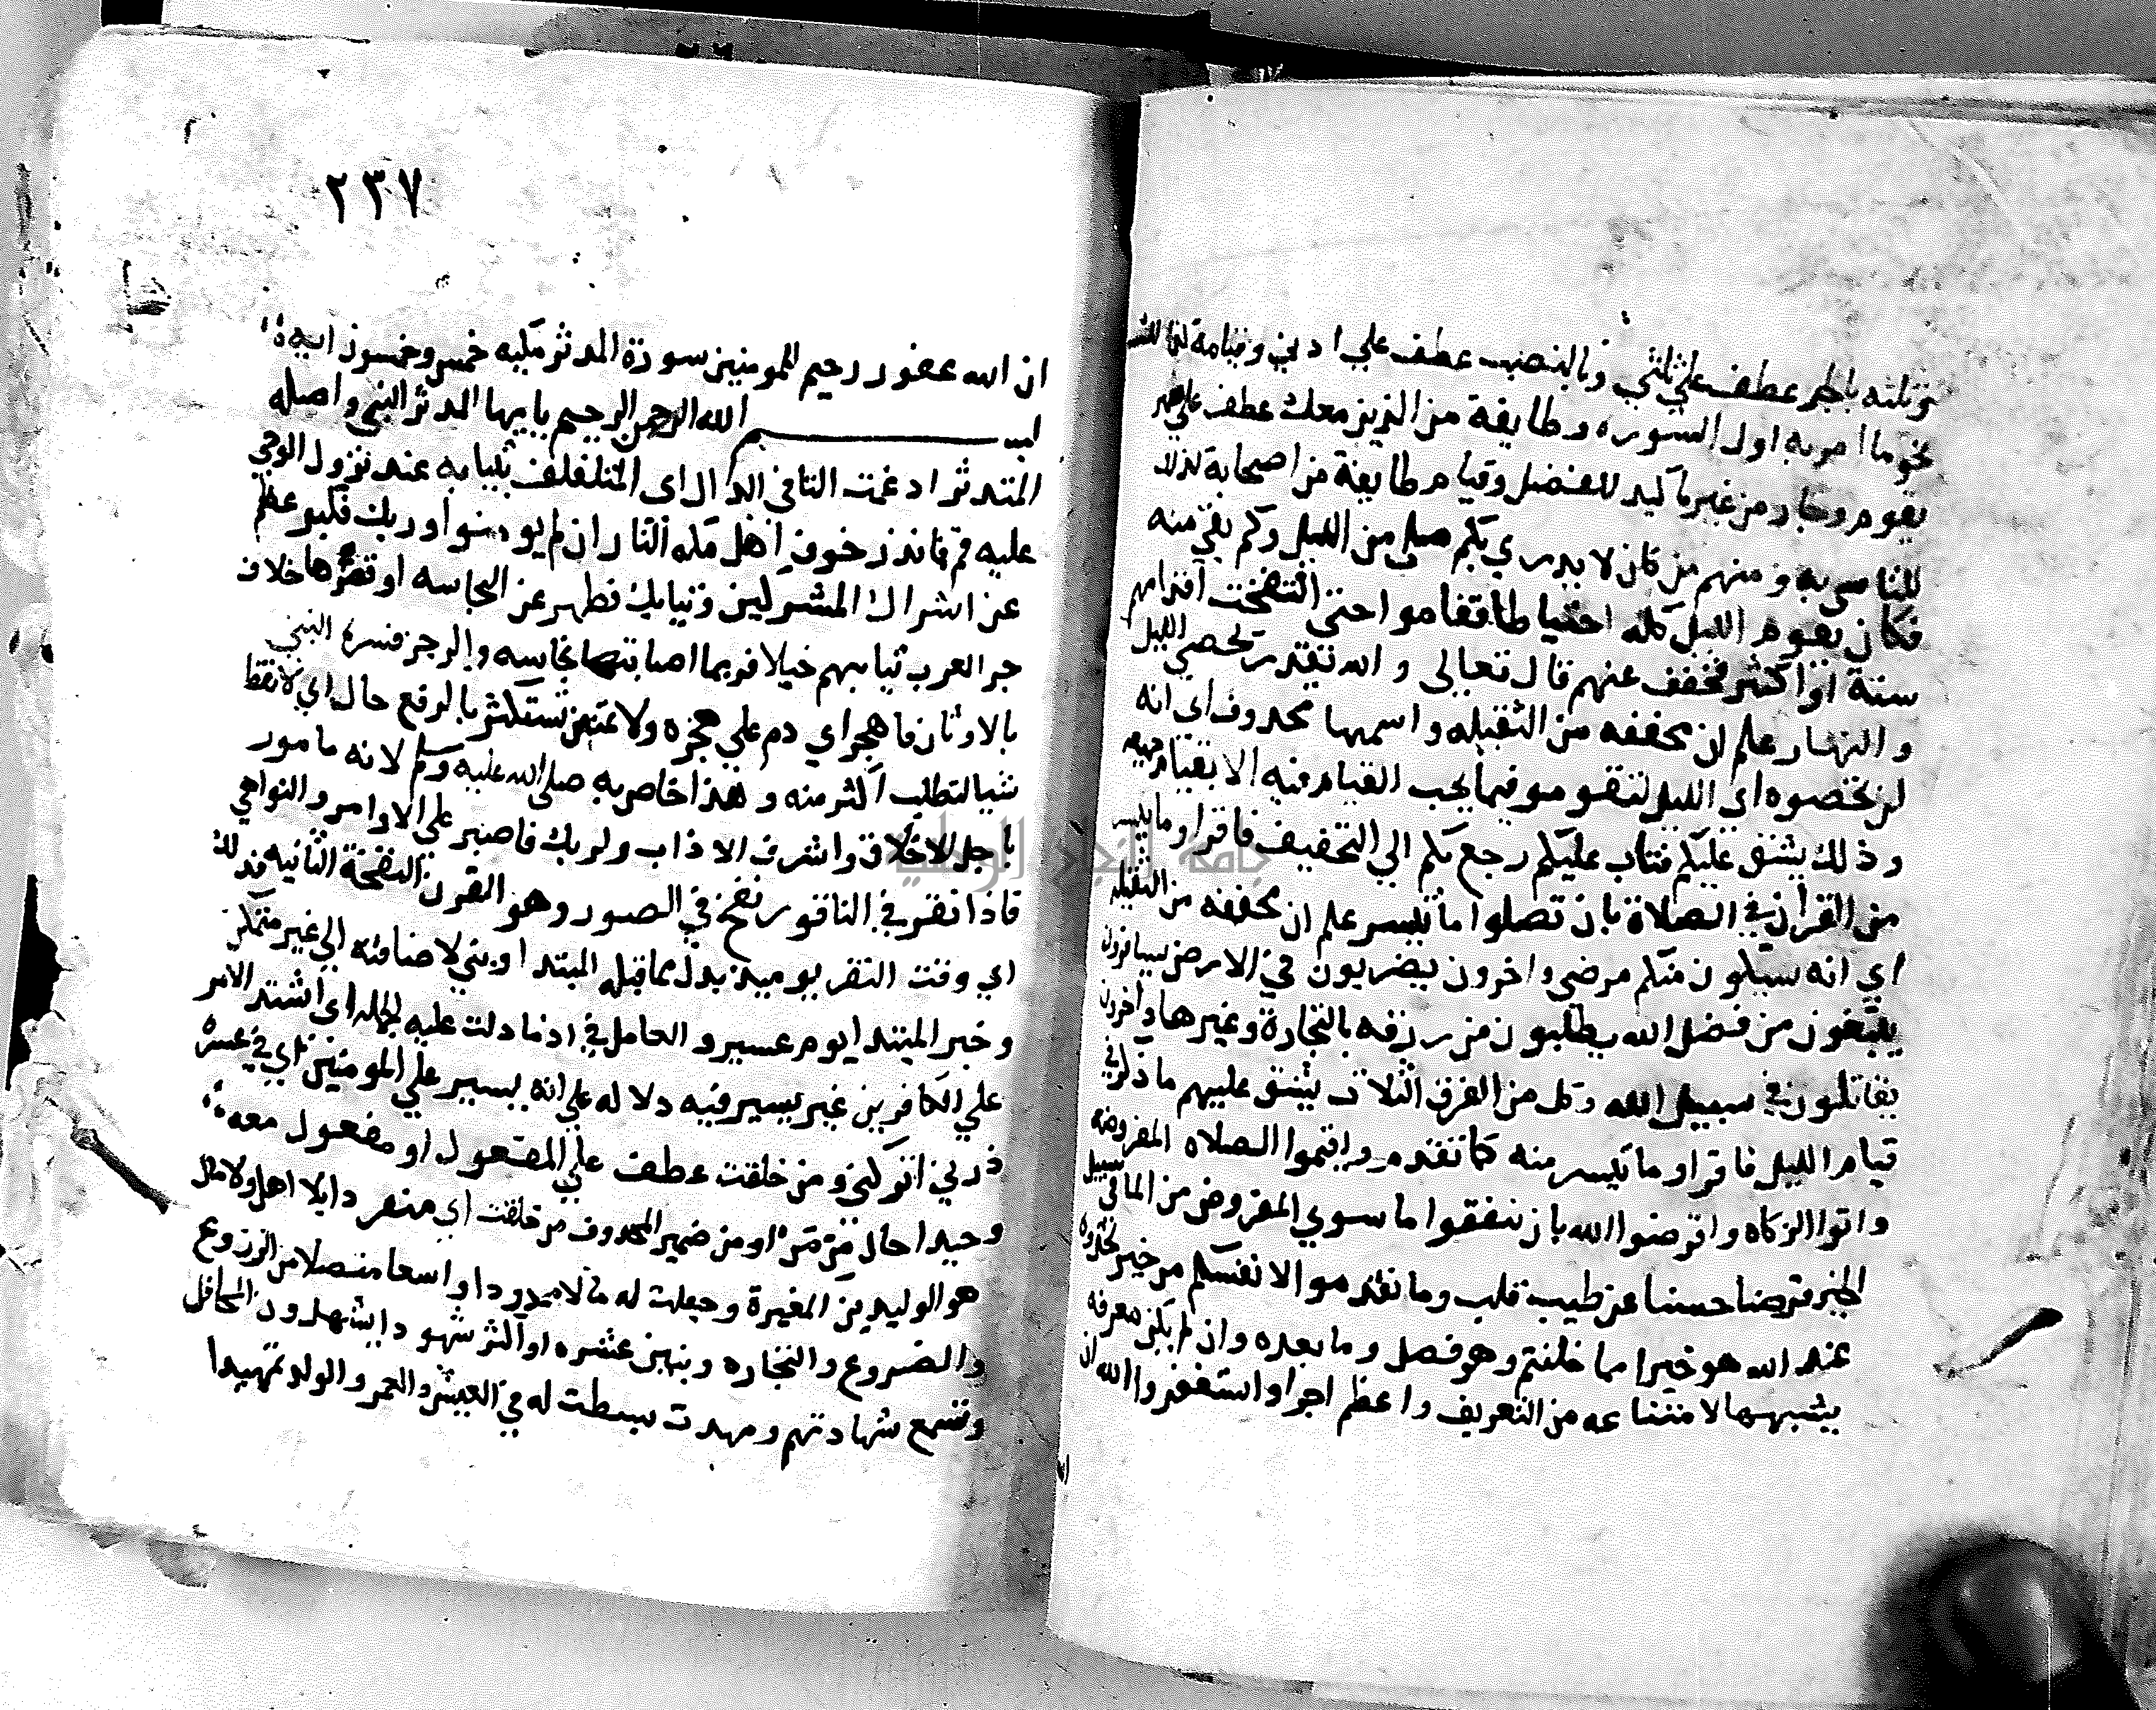 وثلثه بالجر عطف علي ثلثي وبالنصب عطف علي ادني وقيامه
نحو ما امر به اول السوره وطايفة من الذين معك عطف علي ضمير
تقوم وجاز من غير تاكيد للفصل وقيام طايفة من اصحابه كذلك
للتاسي به ومنهم من كان لا يدري كم صلي من الليل وكم بقي منه
فكان يقوم الليل كله احتياطا فقاموا حتي انتفخت اقدامهم
سنة او اكثر فخفف عنهم قال تعالى والله يقدر يحصي الليل
والنهار علم ان مخففه من الثقيله واسمها محذوف اي انه
لن تحصوه اي الليل لتقوموا فيما يجب القيام فيه الا بقيام جميعه
وذلك يشق عليكم فتاب عليكم رجع بكم الي التخفيف فاقراوا ما تيسر
من القران في الصلاة بان تصلوا ما تيسر علم ان مخففه من الثقيله
اي انه سيكون منكم مرضي واخرون يضربون في الارض يسافرون
يبتغون من فضل الله يطلبون من رزقه بالتجارة وغيرها واخرون
يقاتلون في سبيل الله وكل من الفرق الثلاث يشق عليهم ما ذكر في
قيام الليل فاقراو ما تيسر منه كما تقدم واقيموا الصلاه المفروضه
واتوا الزكاه واقرضوا الله بان تنفقوا ما سوي المفروض من المال في سبيل
الخير قرضا حسنا عن طيب قلب وما تقدموا لانفسكم من خير تجدوه
عند الله هو خيرا مما خلفتم وهو فصل وما بعده وان لم يكن معرفه
يشبهها لامتناعه من التعريف واعظم اجرا واستغفروا الله ان
٢٣٧
ان الله غفور رحيم للمومنين سورة المدثر مكيه خمس وخمسون ايه
بسم الله الرحمن الرحيم يا يها المدثر النبي واصله
المتدثر ادغمت التا في الدال اي المتلفلف بثيابه عند نزول الوحي
عليه قم فانذر خوف اهل مكه النار ان لم يومنوا وربك فكبر عظم
عن اشراك المشركين وثيابك فطهر عن النجاسه او قصرها خلاف
جر العرب ثيابهم خيلا فربما اصابتها نجاسه والرجز فسره النبي
بالاوثان فاهجر اي دم علي هجره ولا تمنن تستكثر بالرفع حال اي لا تعط
شيا لتطلب اكثر منه وهذا خاص به صلى الله عليه وسلم لانه مامور
باجمل الاخلاق واشرف الاداب ولربك فاصبر علي الاوامر والنواهي
فاذا نقر في الناقور نفخ في الصور وهو القرن النفخة الثانيه فذلك
اي وقت النقر يوميذ بدل مما قبله المبتدا وبني لاضافته الي غير متمكن
وخبر المبتدا يوم عسير والعامل في اذا ما دلت عليه الجمله اي اشتد الامر
علي الكافرين غير يسير فيه دلاله علي انه يسير علي المومنين اي في عسره
ذرني اتركني ومن خلقت عطف علي المفعول او مفعول معه
وحيدا حال من من او من ضميره المحذوف من خلقت اي منفردا بلا اهل ولا مال
هو الوليد بن المغيرة وجعلت له مالا ممدودا واسعا متصلا من الزروع
والضروع والتجاره وبنين عشره او اكثر شهودا يشهدون المحافل
وتسمع شهادتهم ومهدت بسطت له في العيش والعمر والولد تمهيدا